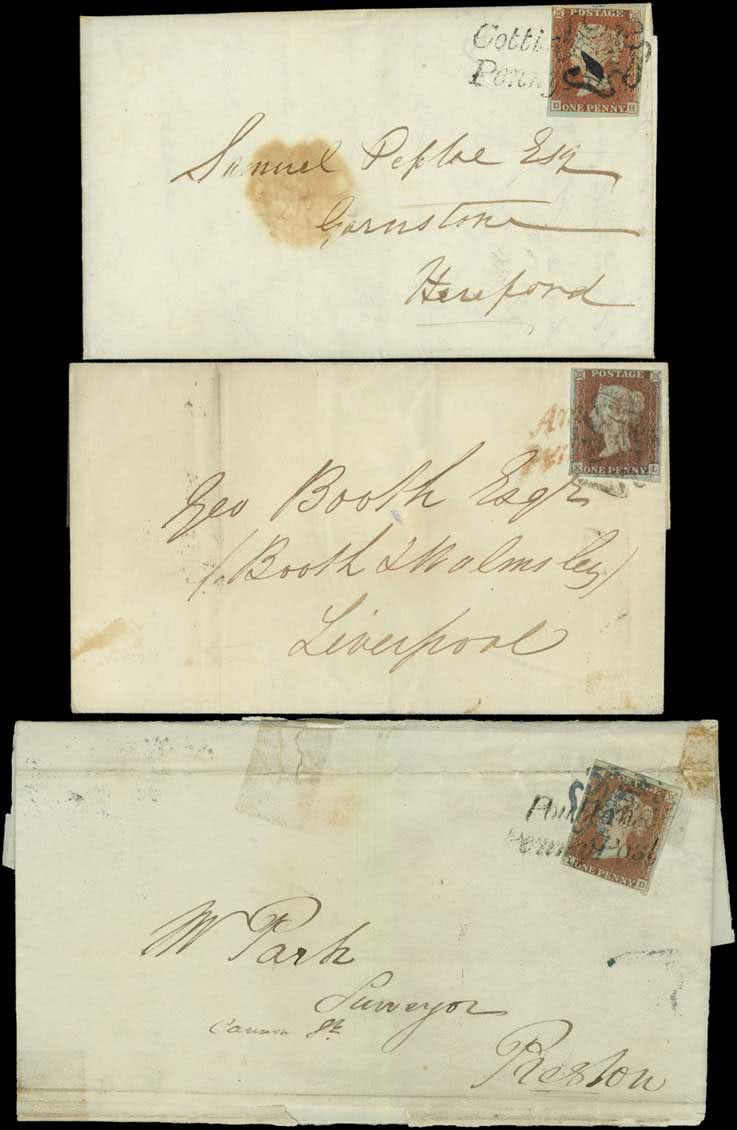 POSTAGE
Penny
D ONE PENNY H
Samuel Peploe Esq
Garnstone
Hereford
POSTAGE
ONE PENNY
Geo Booth Esqr
(Booth & Walmsley)
Liverpool
Penny Post
ONE PENNY D
W Park
Surveyor
Cannon St
Preston